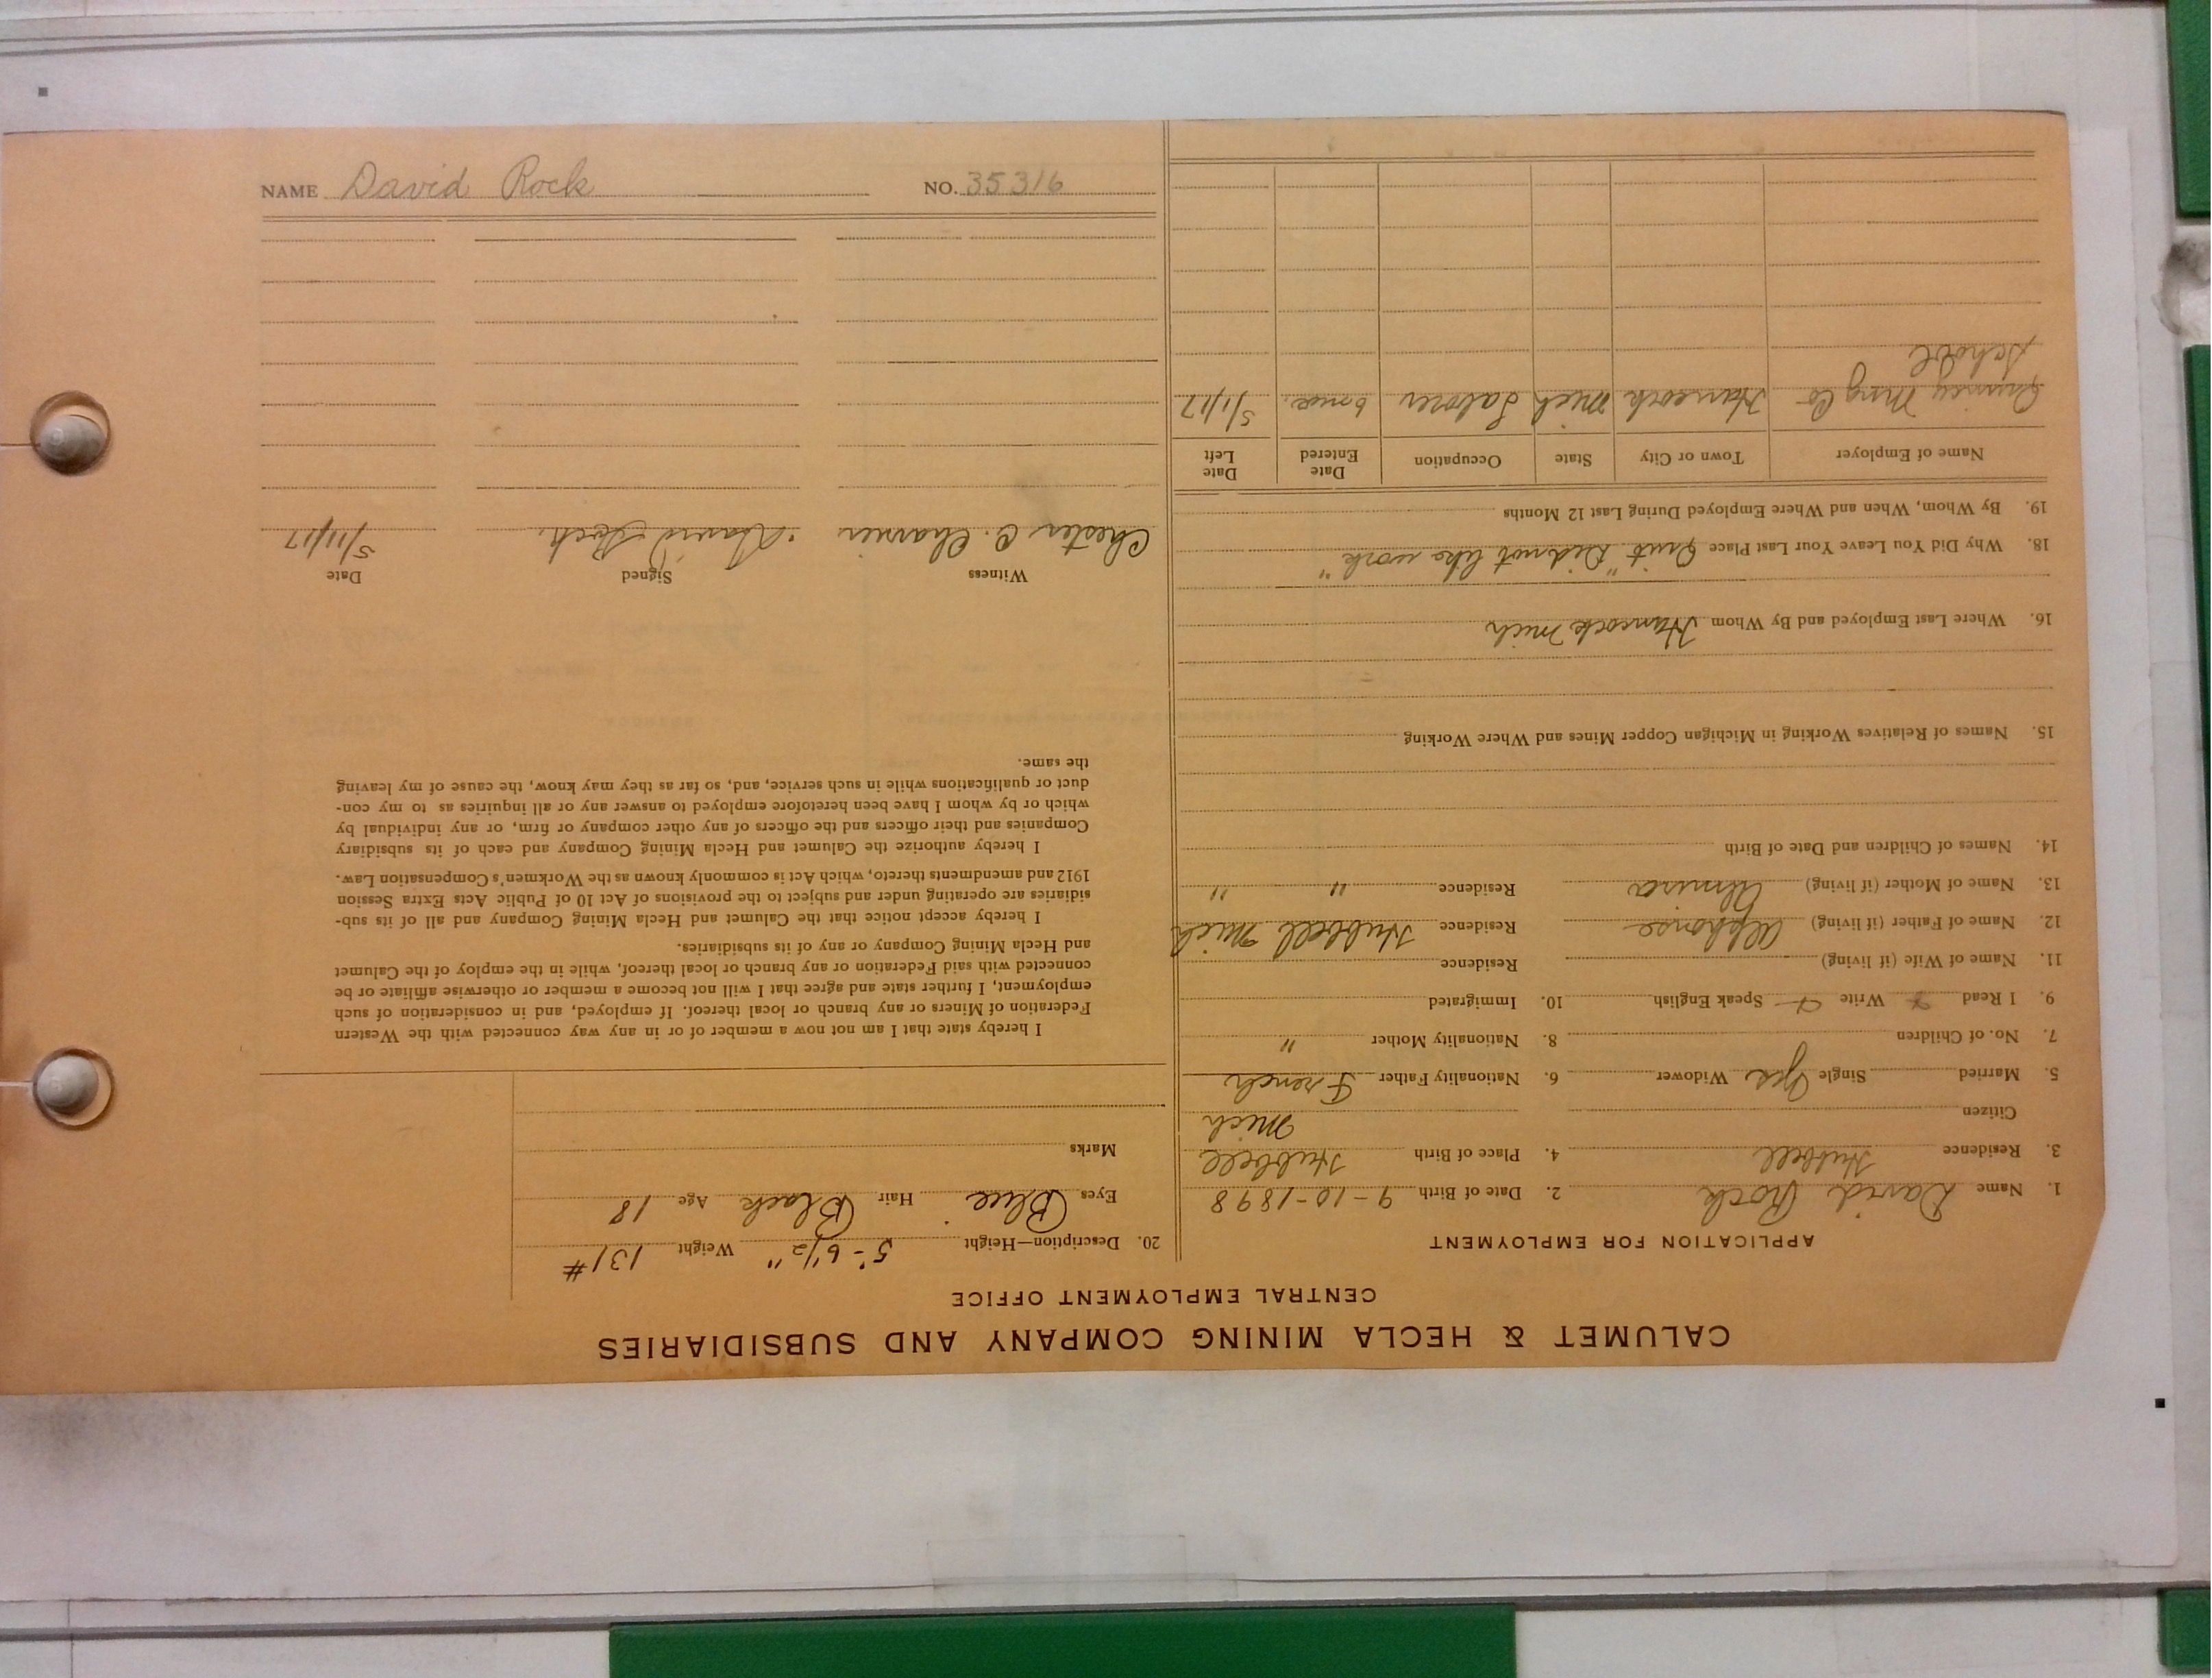 CALUMET & HECLA MINING COMPANY AND SUBSIDIARIES
CENTRAL EMPLOYMENT OFFICE
APPLICATION FOR EMPLOYMENT
1. Name David Rock 2. Date of Birth 9-10-1898
3. Residence Hubbell 4. Place of Birth Hubbell
Citizen Mich
5. Married Single Yes Widower 6. Nationality Father French
7. No. of Children 8. Nationality Mother "
9. I Read Write Speak English 10. Immigrated
11. Name of Wife (if living) Residence
12. Name of Father (if living) Alphonse Residence Hubbell Mich
13. Name of Mother (if living) Elmira Residence " "
14. Names of Children and Date of Birth
15. Names of Relatives Working in Michigan Copper Mines and Where Working
16. Where Last Employed and By Whom Hancock Mich
18. Why Did You Leave Your Last Place Quit "Did not like work"
19. By Whom, When and Where Employed During Last 12 Months
Name of Employer Town or City State Occupation Date Entered Date Left
Quincy Mng Co Hancock Mich Laborer 6 mos. 5/1/17
School
20. Description—Height 5'-6 1/2" Weight 131#
Eyes Blue Hair Black Age 18
Marks
I hereby state that I am not now a member of or in any way connected with the Western
Federation of Miners or any branch or local thereof. If employed, and in consideration of such
employment, I further state and agree that I will not become a member or otherwise affiliate or be
connected with said Federation or any branch or local thereof, while in the employ of the Calumet
and Hecla Mining Company or any of its subsidiaries.
I hereby accept notice that the Calumet and Hecla Mining Company and all of its sub-
sidiaries are operating under and subject to the provisions of Act 10 of Public Acts Extra Session
1912 and amendments thereto, which Act is commonly known as the Workmen's Compensation Law.
I hereby authorize the Calumet and Hecla Mining Company and each of its subsidiary
Companies and their officers and the officers of any other company or firm, or any individual by
which or by whom I have been heretofore employed to answer any or all inquiries as to my con-
duct or qualifications while in such service, and, so far as they may know, the cause of my leaving
the same.
Witness Signed Date
Chester C. Charrier David Rock. 5/11/17
NAME David Rock NO. 35316